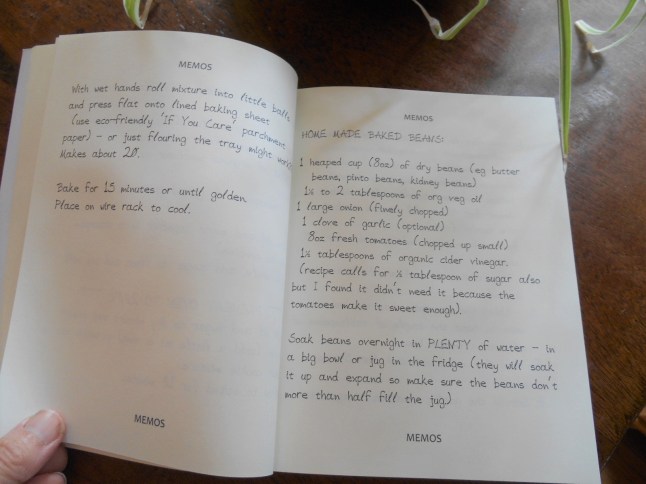 MEMOS
With wet hands roll mixture into little balls
and press flat onto lined baking sheet
(use eco-friendly 'If You Care' parchment
paper) - or just flouring the tray might work)
Makes about 20.
Bake for 15 minutes or until golden.
Place on wire rack to cool.
MEMOS
MEMOS
HOME MADE BAKED BEANS!
1 heaped cup (8oz) of dry beans (eg butter
beans, pinto beans, kidney beans)
to 2 tablespoons of org veg oil
1 large onion (finely chopped)
1 clove of garlic (optional)
8oz fresh tomatoes (chopped up small)
tablespoons of organic cider vinegar.
(recipe calls for tablespoon of sugar also
but I found it didn't need it because the
tomatoes make it sweet enough).
Soak beans overnight in PLENTY of water - in
a big bowl or jug in the fridge (they will soak
it up and expand so make sure the beans don't
more than half fill the jug)
MEMOS